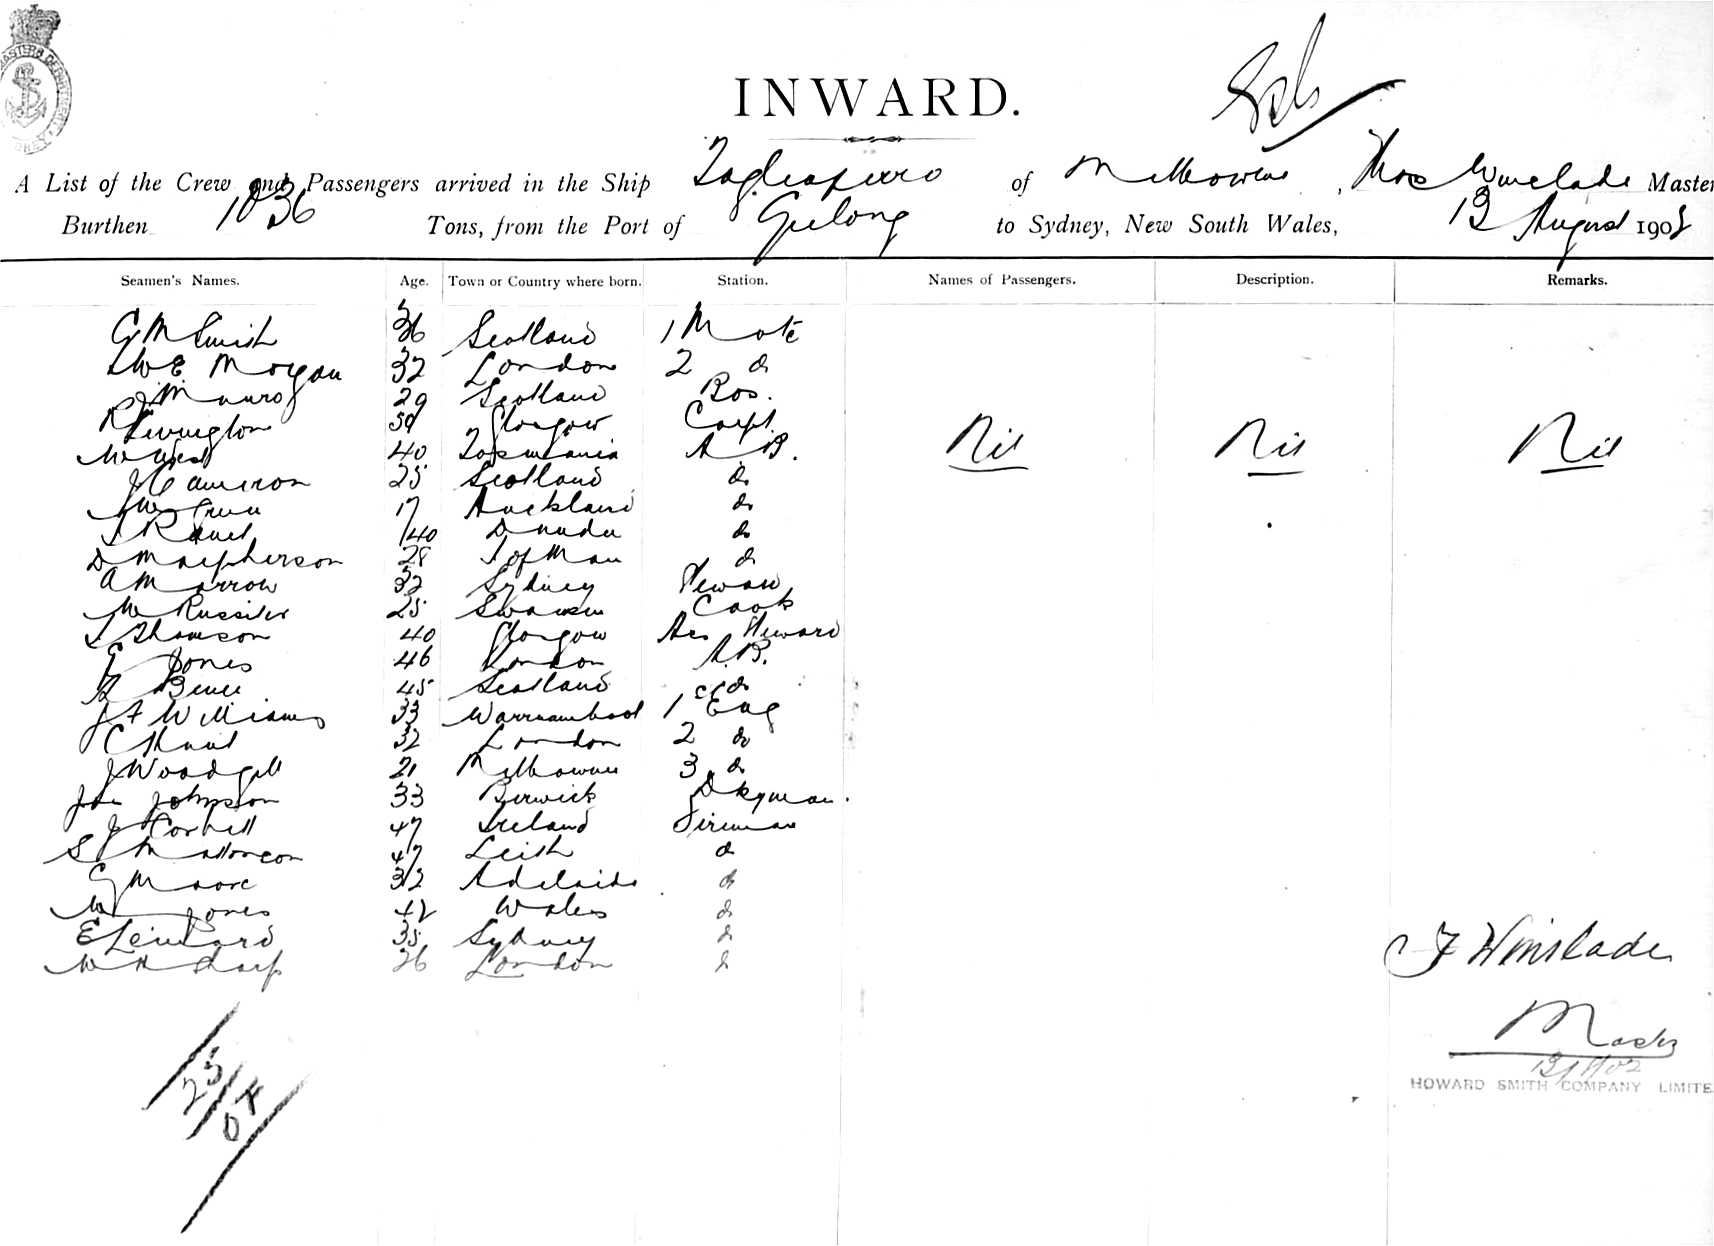 INWARD.
A List of the Crew and Passengers arrived in the Ship Tagliaferro of Melbourne, Thos Winslade Master
Burthen 1036 Tons, from the Port of Geelong to Sydney, New South Wales, 13 August 190
Seamen's Names. Age. Town or Country where born. Station. Names of Passengers. Description. Remarks.
G M Smith 36 Scotland 1 Mate
W E Morgan 32 London 2 do
J Munro 29 Scotland Bos.
R Livington 59 Glasgow Carpt. Nil Nil Nil
W West 40 Tasmania A B.
J Cameron 25 Scotland do
W Green 17 Auckland do
40 Dundee do
D Macpherson 28 I of Man do
A Marrow 32 Sydney Steward
W Russiter 25 Swansea Cook
S Thomson 40 Glasgow Ass Steward
Jones 46 London A.B.
Bruce 45 Scotland do
J F Williams 33 Warrnambool 1st Eng
C Hunt 32 London 2 do
J Woodgell 21 Melbourne 3 do
Jas Johnson 33 Berwick Dkyman.
J Corbett 47 Ireland Fireman
S Mattonson 47 Leith do
G Moore 32 Adelaide do
W Jones 42 Wales do
E Leinard 35 Sydney do
W H Sharp 26 London do
T Winslade
Master
HOWARD SMITH COMPANY LIMITE
25